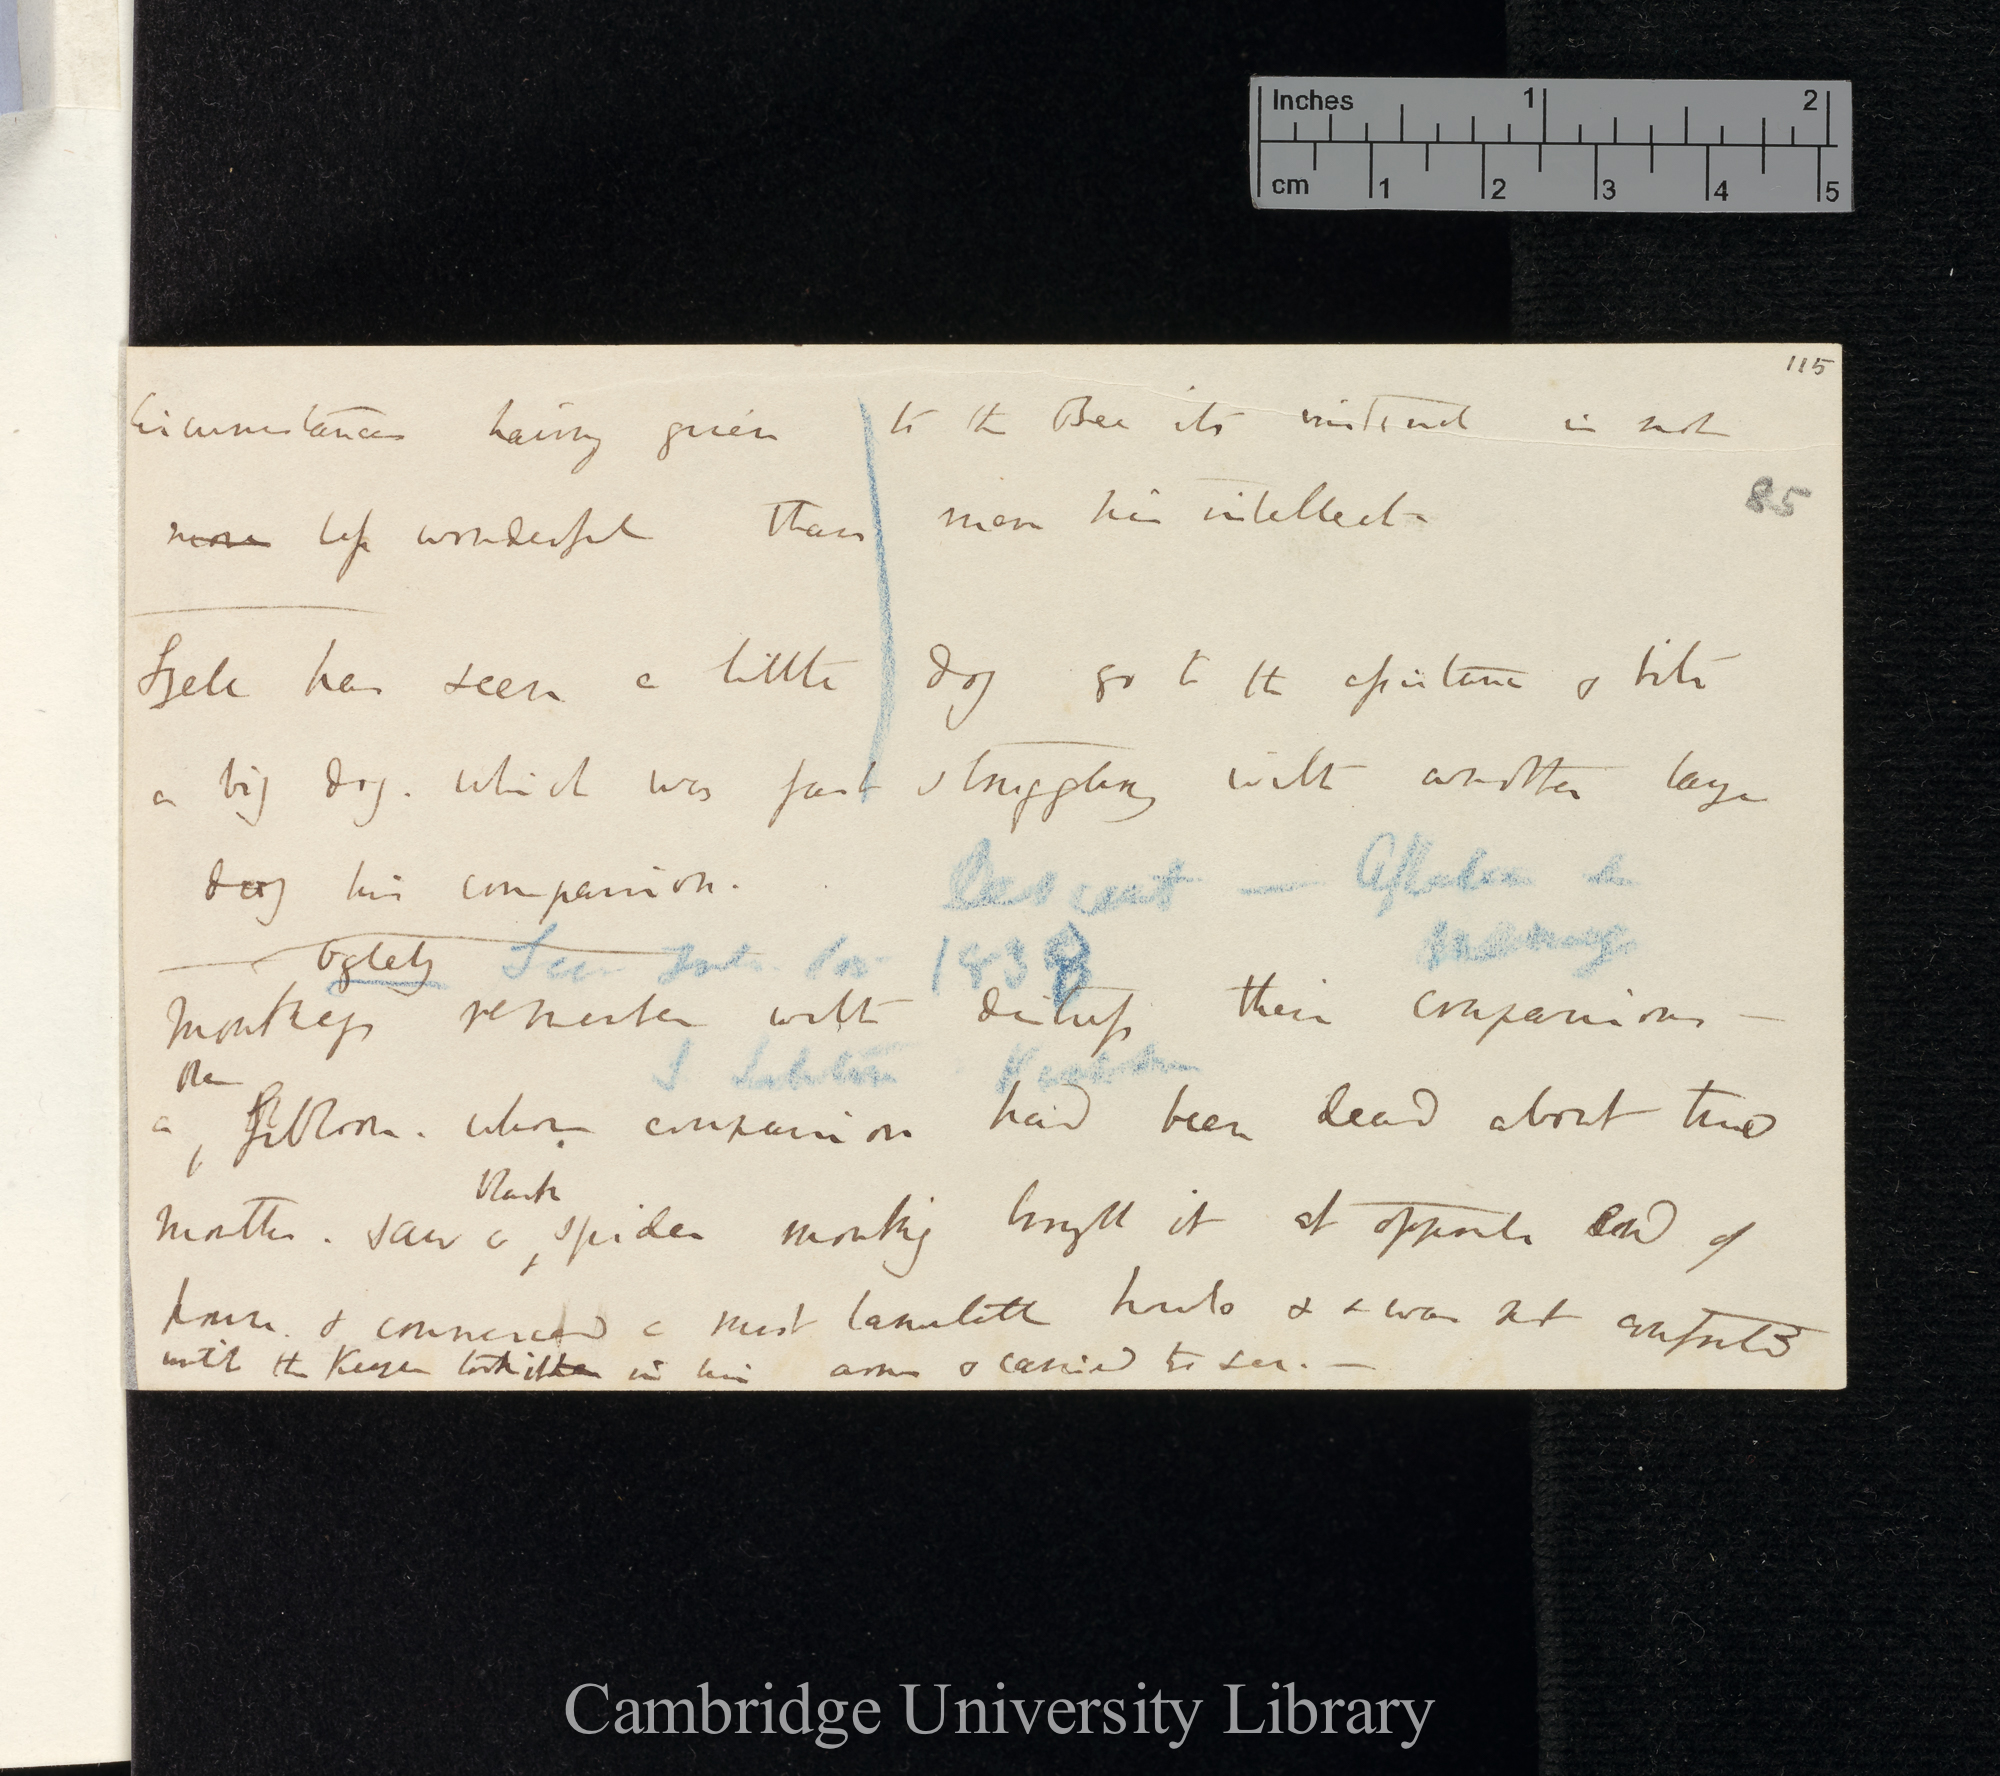 Inches 1 2
cm 1 2 3 4 5
115
Circumstances having given to the Bee its instinct is not
85
more less wonderful than man his intellect
has seen a little dog go to the assistance & bite
a big dog. which was fast struggling with another large
dog his companion.
Descent — Affection &
Memory
Ogleby
See for 1838
Monkeys remember with distress their companions —
one
a Gibbon. whose companion had been dead about three
black
months. saw a spider monkey brought it at opposite end of
house. & commenced a most lamentable howls & was not comforted
until the Keeper took it in his arms & carried to see. —
Cambridge University Library